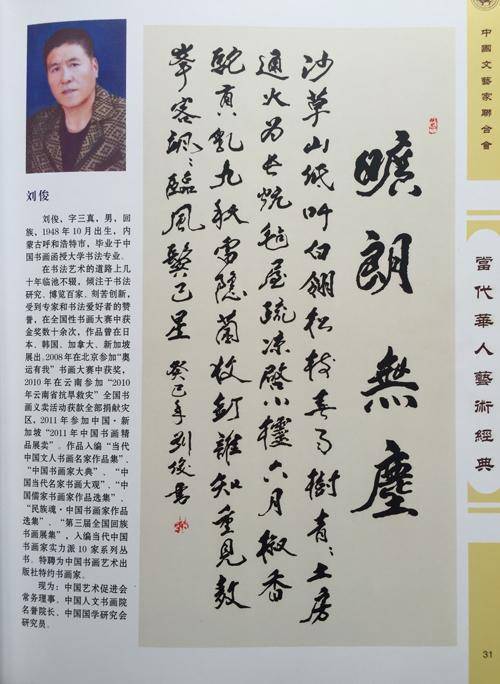 刘俊
刘俊，字三真，男，回
族，1948年10月出生，内
蒙古呼和浩特市，毕业于中
国书画函授大学书法专业。
在书法艺术的道路上几
十年临池不辍，倾注于书法
研究、博览百家、刻苦创新，
受到专家和书法爱好者的赞
誉，在全国性书画大赛中获
金奖数十余次，作品曾在日
本、韩国、加拿大、新加坡
展出。2008年在北京参加“奥
运有我”书画大赛中获奖，
2010年在云南参加“2010
年云南省抗旱救灾”全国书
画义卖活动获款全部捐献灾
区，2011年参加中国·新
加坡“2011年中国书画精
品展卖”。作品入编“当代
中国文人书画名家作品集”、
“中国书画家大典”、“中
国当代名家书画大观”、“中
国儒家书画家作品选集”、
“民族魂·中国书画家作品
选集”、“第三届全国回族
书画展集”，入编当代中国
书画家实力派10家系列丛
书。特聘为中国书画艺术出
版社特约书画家。
现为：中国艺术促进会
常务理事、中国人文书画院
名誉院长、中国国学研究会
研究员。
曠朗無塵
沙草山低叫白翎松枝春雨樹青青土房
通火为長炕毡屋疏凉啓小欞六月椒香
駝貢乳九秋雷隱菌收釘誰知重見鰲
峯客飒飒臨風鬓已星 癸巳年刘俊書
中國文藝家聯合會
當代華人藝術經典
31